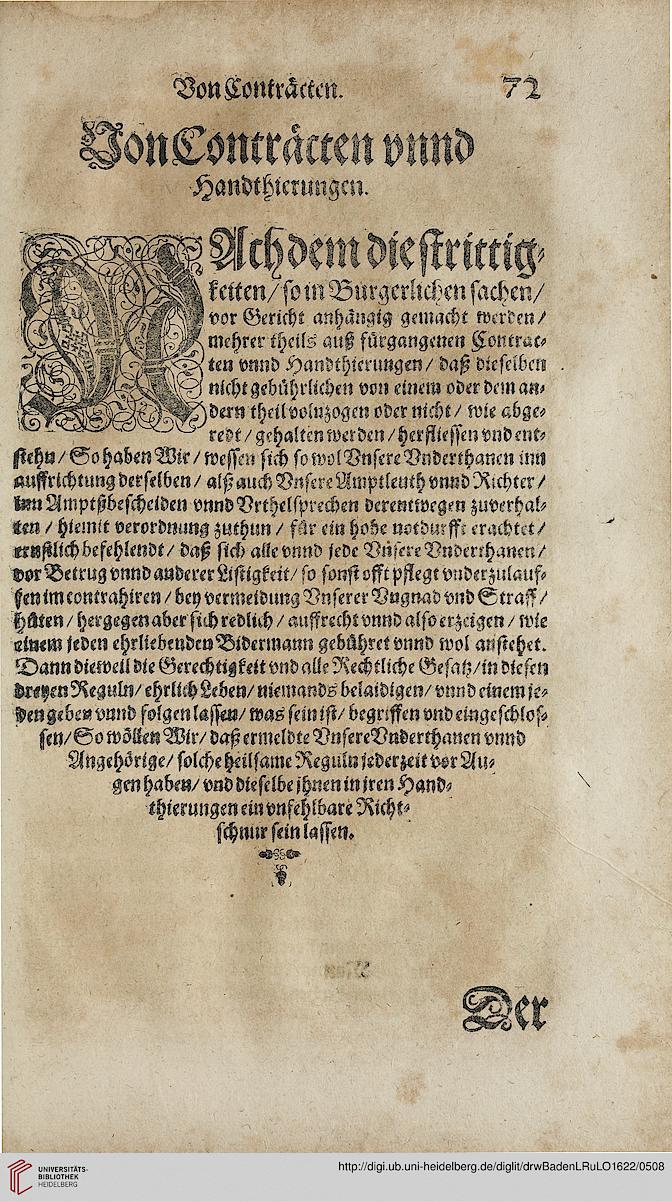 Von Conträcten. 72
Von Conträcten vnnd
Handthierungen.
NAchdem die strittig-
keiten / so in Burgerlichen sachen /
vor Gericht anhängig gemacht werden /
mehrer theils auß fürgangenen Contrac-
ten vnnd Handthierungen / daß dieselben
nicht gebührlichen von einem oder dem an-
dern theil voluzogen oder nicht / wie abge-
redt / gehalten werden / herfliessen vnd ent-
stehn / So haben Wir / wessen sich so wol Vnsere Vnderthanen inn
auffrichtung derselben / alß auch Vnsere Amptleuth vnnd Richter /
inn Amptßbescheiden vnnd Vrthelsprechen derentwegen zuverhal-
ten / hiemit verordnung zuthun / für ein hohe notdurfft erachtet /
ernstlich befehlendt / daß sich alle vnnd jede Vnsere Vnderthanen /
vor Betrug vnnd anderer Listigkeit / so sonst offt pflegt vnderzulauf-
fen im contrahiren / bey vermeidung Vnserer Vngnad vnd Straff /
hüten / hergegen aber sich redlich / auffrecht vnnd also erzeigen / wie
einem jeden ehrliebenden Bidermann gebühret vnnd wol anstehet.
Dann dieweil die Gerechtigkeit vnd alle Rechtliche Gesatz / in diesen
dreyen Reguln / ehrlich Leben / niemands belaidigen / vnnd einem je-
den geben vnnd folgen lassen / was sein ist / begriffen vnd eingeschlos-
sen / So wöllen Wir / daß ermeldte Vnsere Vnderthanen vnnd
Angehörige / solche heilsame Reguln jederzeit vor Au-
gen haben / vnd dieselbe jhnen in jren Hand-
thierungen ein vnfehlbare Richt-
schnur sein lassen.
Der
UNIVERSITÄTS-
BIBLIOTHEK
HEIDELBERG
http://digi.ub.uni-heidelberg.de/diglit/drwBadenLRuLO1622/0508